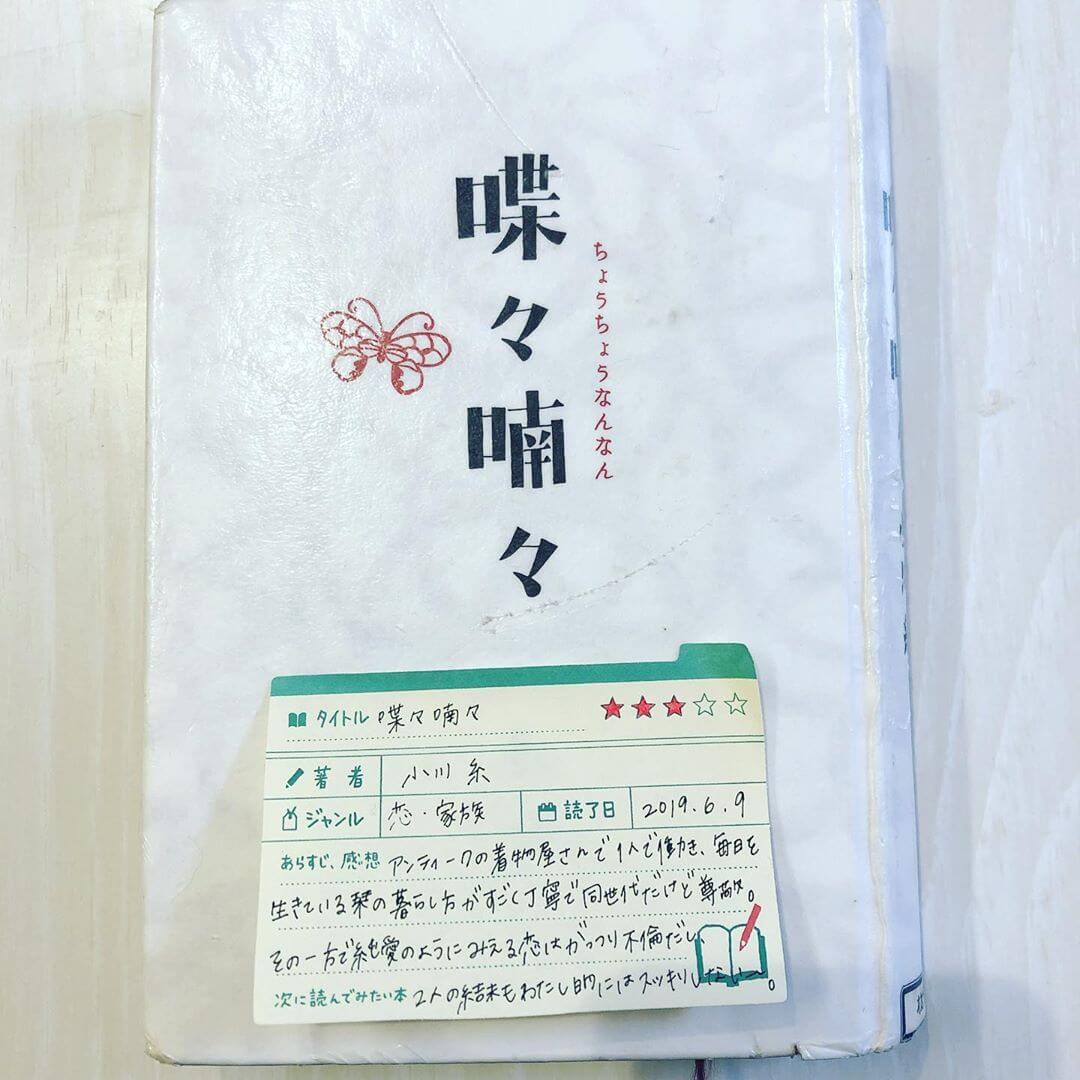 喋々喃々
ちょうちょうなんなん
タイトル 喋々喃々
著者 小川 糸
ジャンル 恋・家族 読了日 2019.6.9
あらすじ、感想 アンティークの着物屋さんで1人で働き、毎日を
生きている栞の暮らし方がすごく丁寧で同世代だけど尊敬。
その一方で純愛のようにみえる恋はがっつり不倫だし、
次に読んでみたい本 2人の結末もわたし的にはスッキリしない〜。